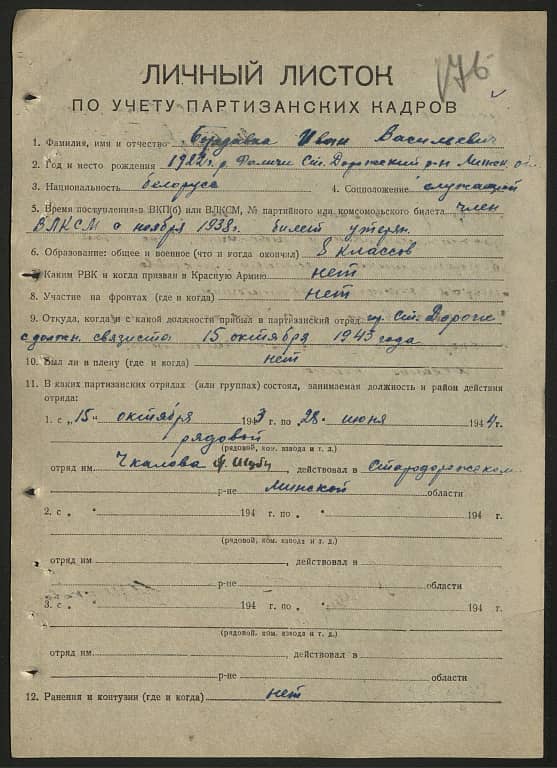 176
ЛИЧНЫЙ ЛИСТОК
ПО УЧЕТУ ПАРТИЗАНСКИХ КАДРОВ
1. Фамилия, имя и отчество Иван Васильевич
2. Год и место рождения 1922 г. д. Фаличи Ст. Дорожский р-н Минск. об.
3. Национальность белорус 4. Соцположение служащий
5. Время поступления в ВКП(б) или ВЛКСМ, № партийного или комсомольского билета член
ВЛКСМ с ноября 1938 г. билет утерян.
6. Образование: общее и военное (что и когда окончил) 8 классов
7. Каким РВК и когда призван в Красную Армию нет
8. Участие на фронтах (где и когда) нет
9. Откуда, когда и с какой должности прибыл в партизанский отряд гр. Ст. Дороги
с должн. связиста 15 октября 1943 года
10. Был ли в плену (где и когда) нет
11. В каких партизанских отрядах (или группах) состоял, занимаемая должность и район действия
отряда:
1. с „15" октября 1943 г. по 28 июня 1944 г.
рядовой
(рядовой, ком. взвода и т. д.)
отряд им. Чкалова , действовал в Стародорожском
р-не Минской области
2. с „ " 194 г. по „ " 194 г.
(рядовой, ком. взвода и т. д.)
отряд им. , действовал в
р-не области
3. с „ " 194 г. по „ " 194 г.
(рядовой, ком. взвода и т. д.)
отряд им. , действовал в
р-не области
12. Ранения и контузии (где и когда) нет